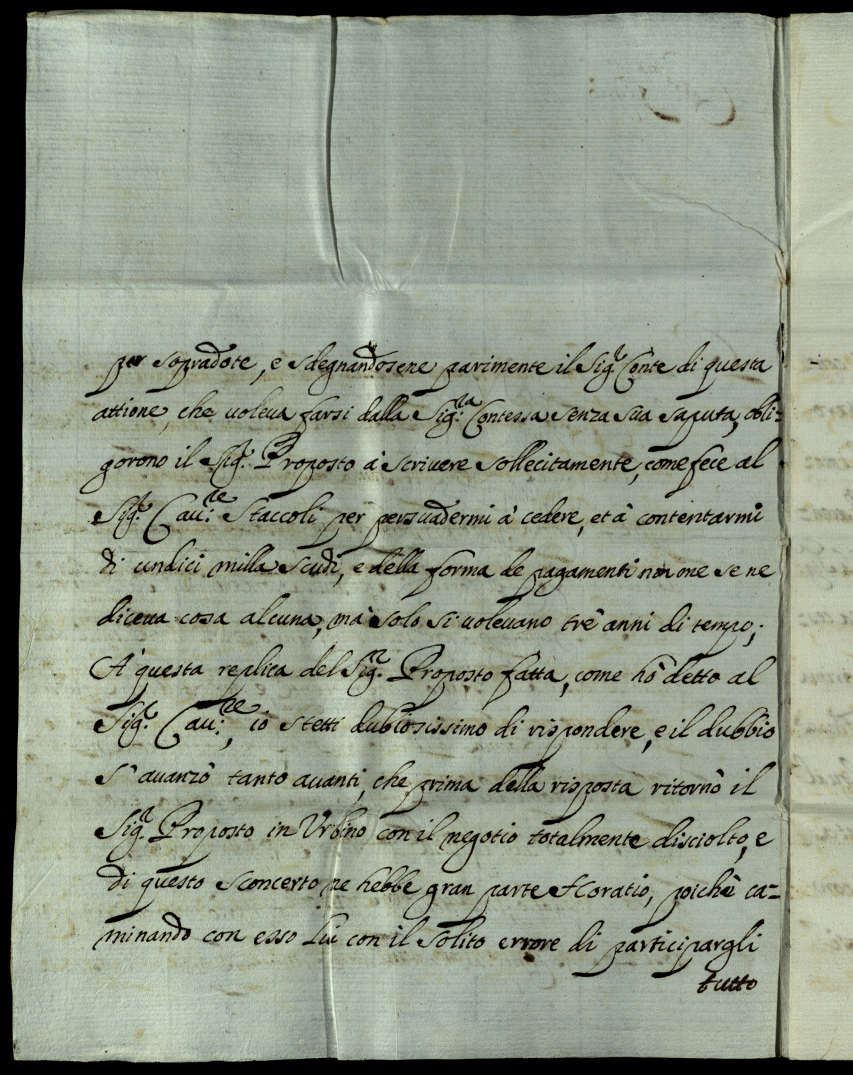 per sopradote, e sdegnandosene parimente il Sig.r Conte di questa
attione, che voleva farsi dalla Sig.ra Contessa senza sua saputa, obli=
gorono il Sig.r Proposto à scrivere sollecitamente, come fece al
Sig.r Cau.re Staccoli per persuadermi à cedere, et à contentarmi
di undici milla scudi, e della forma de pagamenti non me se ne
diceva cosa alcuna, mà solo si volevano trè anni di tempo;
A' questa replica del Sig.r Proposto fatta, come hò detto al
Sig.r Cau.re, io stetti dubiosissimo di rispondere, e il dubbio
s'avanzò tanto avanti, che prima della risposta ritornò il
Sig.r Proposto in Urbino con il negotio totalmente disciolto, e
di questo sconcerto ne hebbe gran parte Horatio, poichè ca=
minando con esso Lui con il solito errore di participargli
tutto